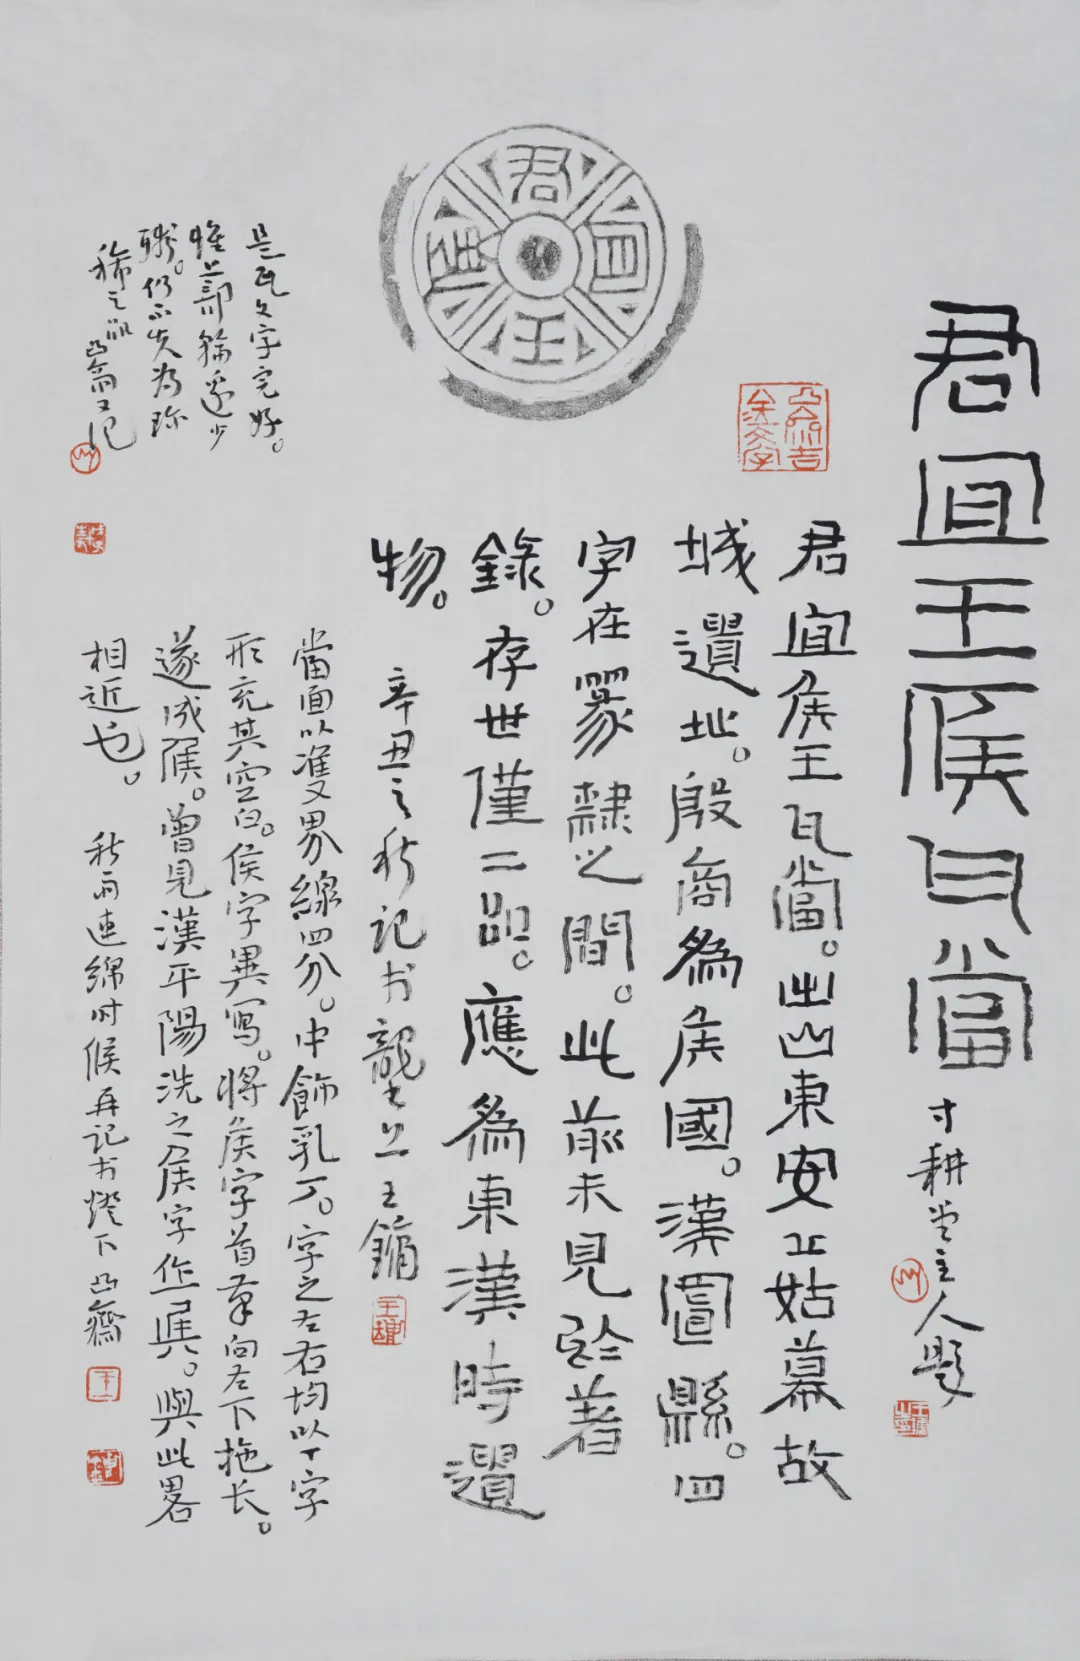 君宜王侯瓦當
寸耕堂主人題
君宜侯王瓦當。出山東安丘姑幕故
城遺址。殷商為侯國。漢置縣。四
字在篆隸之間。此前未見於著
錄。存世僅二品。應為東漢時遺
物。
辛丑之秋記於龍上王鏞
當面以雙界線四分。中飾乳丁。字之左右均以丁字
形充其空白。侯字異寫。將侯字首筆向左下拖长。
遂成侯。曾見漢平陽洗之侯字作侯。與此畧
相近也。
秋雨連綿时候再記於燈下凸齋
是瓦文字完好。
惟郭輪邊少
殘。仍不失為珍
稀之品凸斋又记
君宜侯王
王鏞